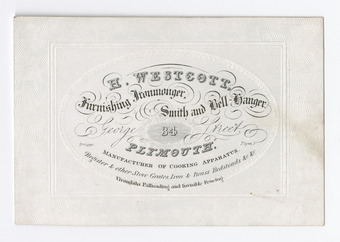 H. WESTCOTT,
Furnishing Ironmonger,
Smith and Bell-Hanger
George 34 Street
PLYMOUTH.
MANUFACTURER OF COOKING APPARATUS
Register & other Stove Grates, Iron & Brass Bedsteads &c. &c.
Palisading and Invisible Fencing